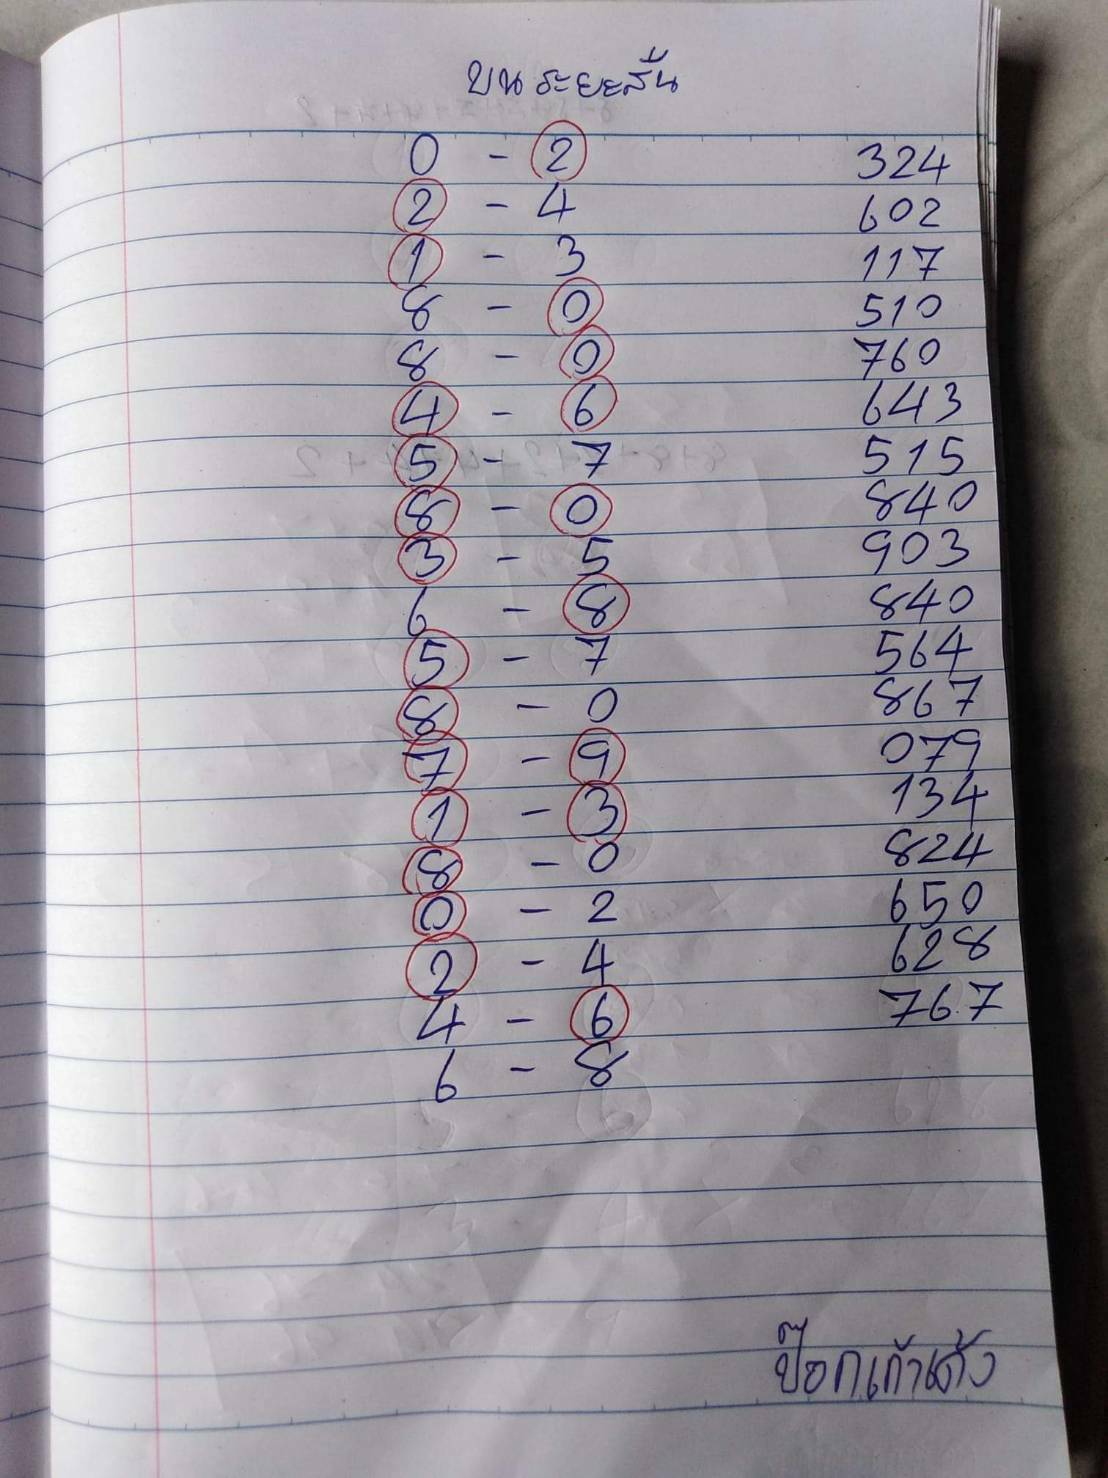 บน ระยะสั้น
0 - 2 324
2 - 4 602
1 - 3 117
8 - 0 510
8 - 0 760
4 - 6 643
5 - 7 515
8 - 0 840
3 - 5 903
6 - 8 840
5 - 7 564
8 - 0 867
7 - 9 079
1 - 3 134
8 - 0 824
0 - 2 650
2 - 4 628
4 - 6 767
6 - 8
ป๊อกเก้าเด้ง